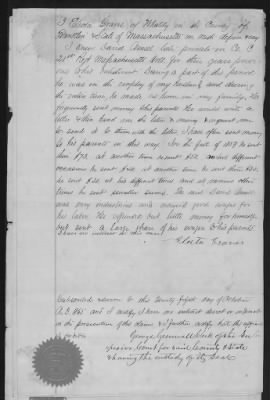 I Electa Graves of Whately in the County of
Franklin & State of Massachusetts do and depose & say
I knew David Amsel late private in Co. C
21st Regt Massachusetts Vols. for three years previous
to his enlistment During a part of this period
he was in the employ of my husband and during
the entire time he made a home in my family. He
frequently sent money to his parents He would write a
letter & then hand me the letter & money & request me
to send it to them the letter I have often sent money
to his parents in this way. In the fall of 1858 he sent
him $75. at another time he sent $50 and on different
occasions he sent $20. at another time he sent them $30.
he sent $20 at different times and at various other
times he sent smaller sums. The said David Amsel
was very industrious and received good wages for
his labor. He expended but little money for himself
but sent a large share of his wages to his parents.
I have no interest in this case
Electa Graves
Subscribed & sworn to this twenty first day of October
A.D. 1865 and I certify I have no interest direct or indirect
in the prosecution of this claim & I further certify that the
George Grennell Clerk of the Superior
Court for said County & State
& having the custody of its Seal